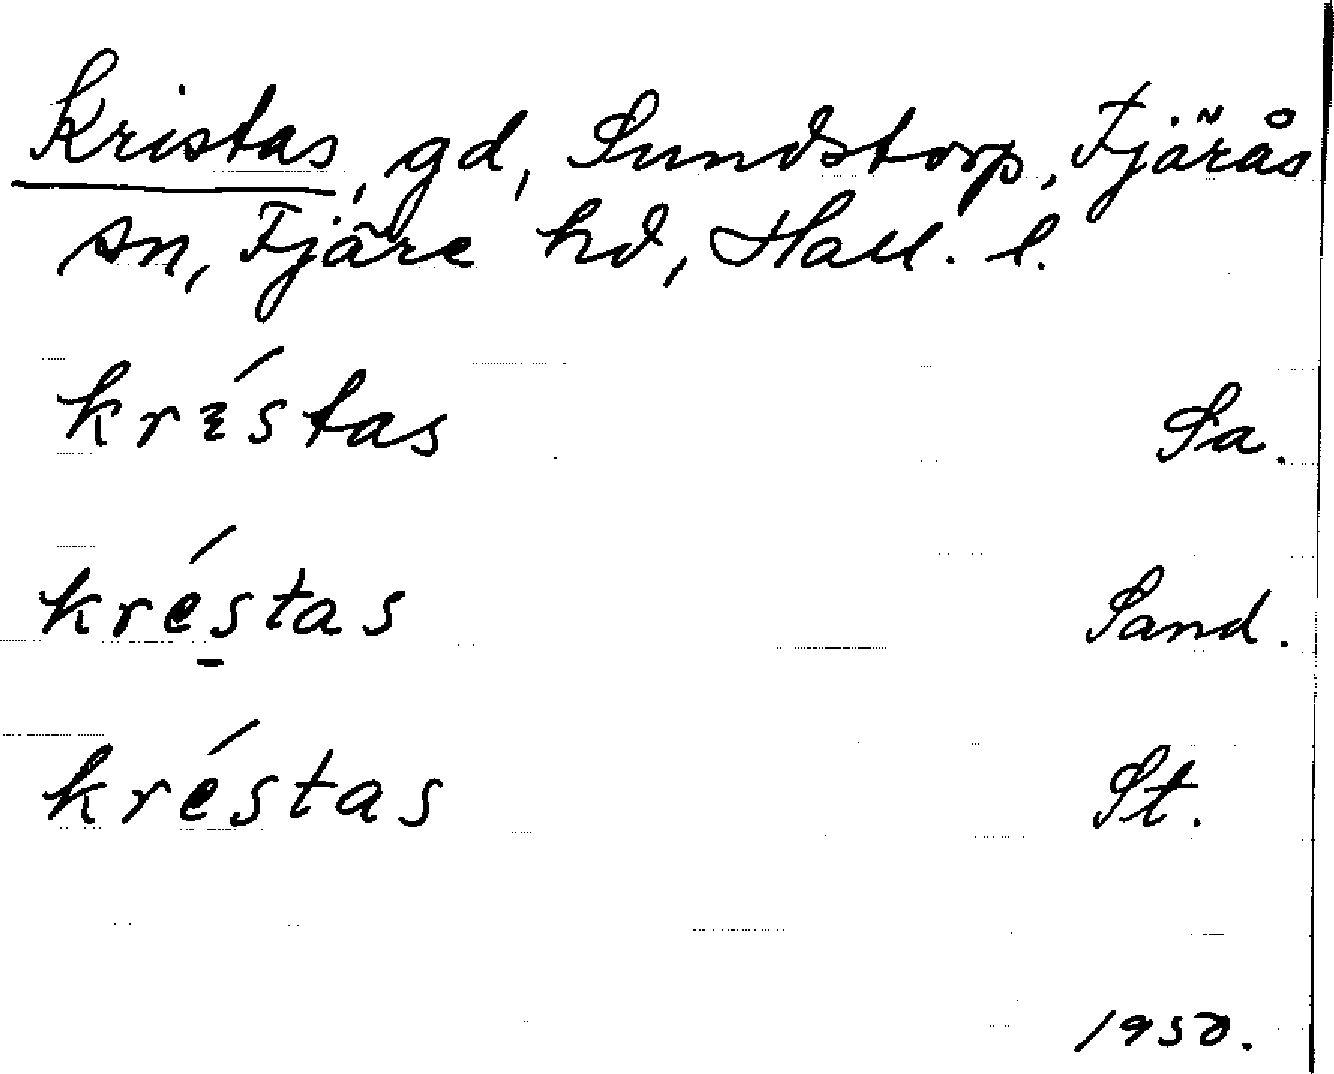 Kristas, gd, Sundstorp, Fjärås
sn, Fjäre hd, Hall. l.
krɛ́stas Sa.
kré̱stas Sand.
kréstas St.
1950.